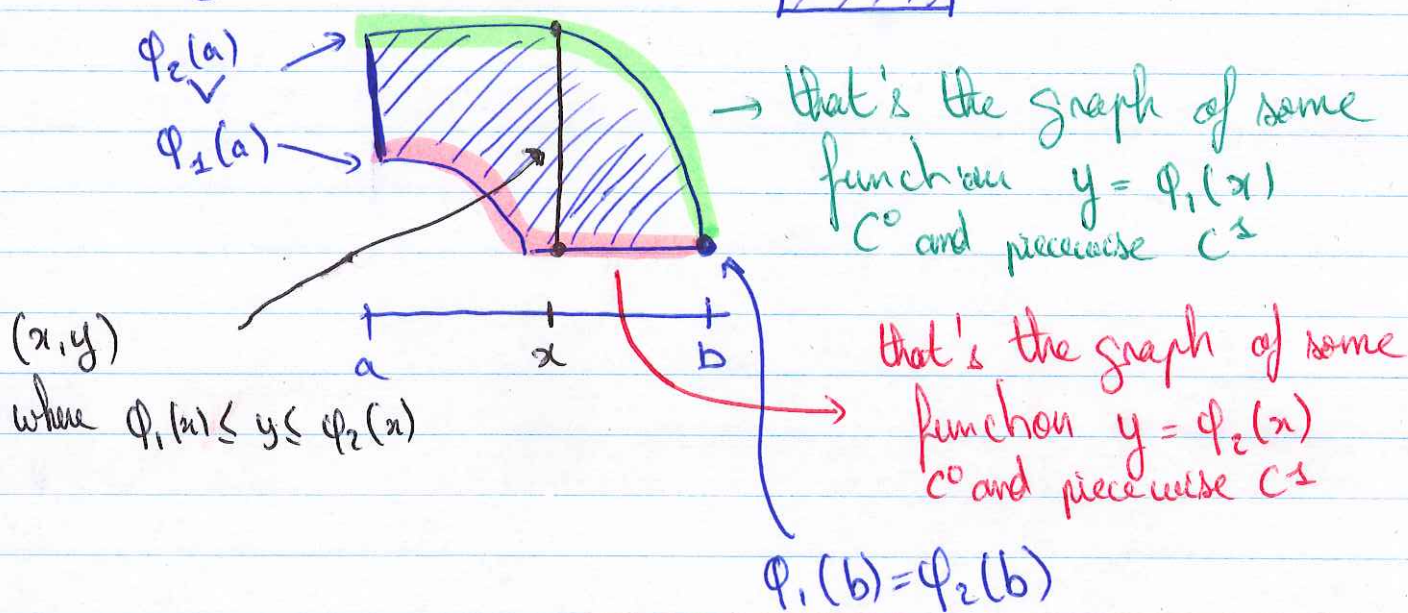 φ₂(a)
∨
φ₁(a)
→ that's the graph of some
function y = φ₁(x)
C⁰ and piecewise C¹
a
x
b
(x,y)
where φ₁(x) ≤ y ≤ φ₂(x)
that's the graph of some
function y = φ₂(x)
C⁰ and piecewise C¹
φ₁(b) = φ₂(b)